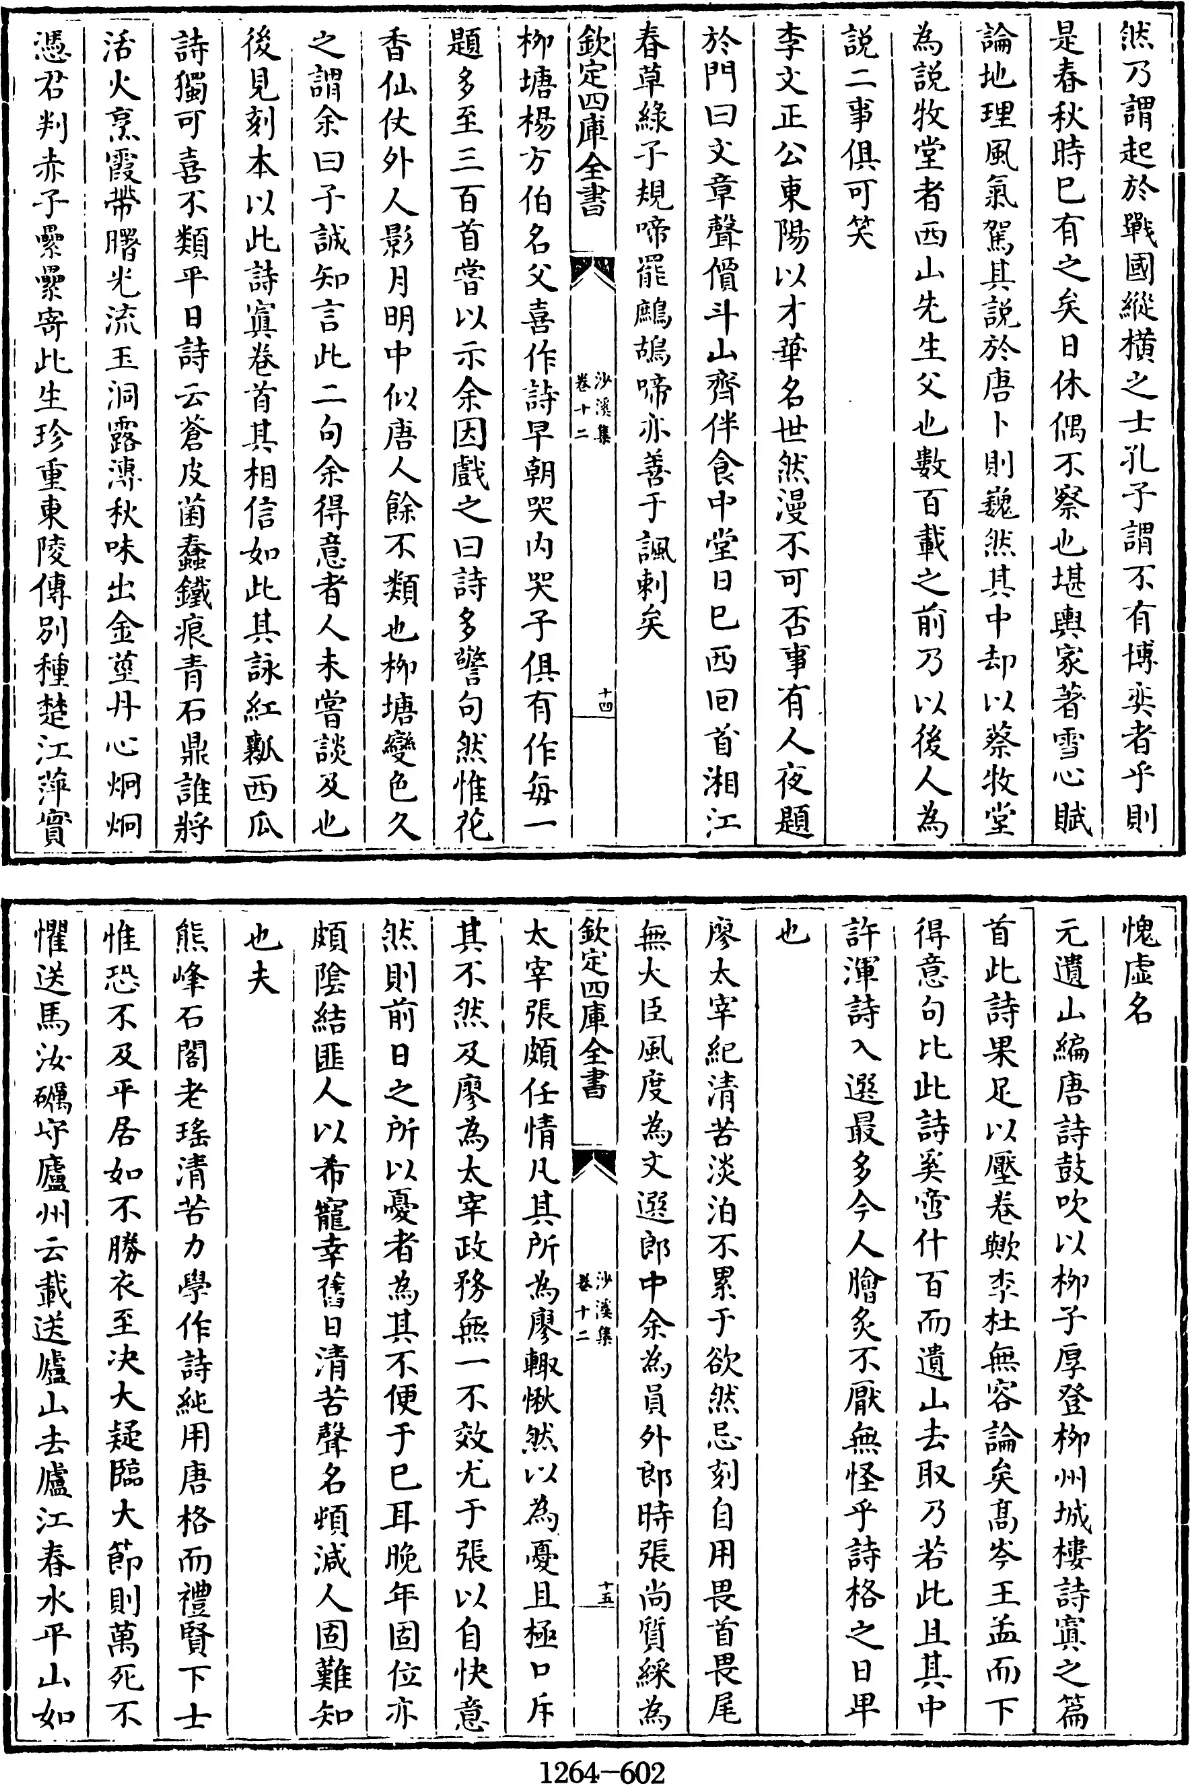 然乃謂起於戰國縱橫之士孔子謂不有博奕者乎則
是春秋時已有之矣日休偶不察也堪輿家著雪心賦
論地理風氣駕其説於唐卜則巍然其中却以蔡牧堂
為説牧堂者西山先生父也數百載之前乃以後人為
説二事俱可笑
李文正公東陽以才華名世然漫不可否事有人夜題
於門曰文章聲價斗山齊伴食中堂日已西回首湘江
春草綠子規啼罷鷓鴣啼亦善于諷刺矣
欽定四庫全書
沙溪集
卷十二
十四
柳塘楊方伯名父喜作詩早朝哭内哭子俱有作每一
題多至三百首嘗以示余因戲之曰詩多警句然惟花
香仙仗外人影月明中似唐人餘不類也柳塘變色久
之謂余曰子誠知言此二句余得意者人未嘗談及也
後見刻本以此詩寘卷首其相信如此其詠紅瓤西瓜
詩獨可喜不類平日詩云蒼皮菌蠢鐵痕青石鼎誰將
活火烹霞帶曙光流玉洞露漙秋味出金莖丹心炯炯
憑君判赤子纍纍寄此生珍重東陵傳別種楚江萍實
愧虛名
元遺山編唐詩鼓吹以柳子厚登柳州城樓詩寘之篇
首此詩果足以壓卷歟李杜無容論矣髙岑王孟而下
得意句比此詩奚啻什百而遺山去取乃若此且其中
許渾詩入選最多今人膾炙不厭無怪乎詩格之日卑
也
廖太宰紀清苦淡泊不累于欲然忌刻自用畏首畏尾
無大臣風度為文選郎中余為員外郎時張尚質綵為
欽定四庫全書
沙溪集
卷十二
十五
太宰張頗任情凡其所為廖輙愀然以為憂且極口斥
其不然及廖為太宰政務無一不效尤于張以自快意
然則前日之所以憂者為其不便于已耳晚年固位亦
頗陰結匪人以希寵幸舊日清苦聲名頓減人固難知
也夫
熊峰石閣老瑤清苦力學作詩純用唐格而禮賢下士
惟恐不及平居如不勝衣至决大疑臨大節則萬死不
懼送馬汝礪守廬州云載送廬山去廬江春水平山如
1264—602